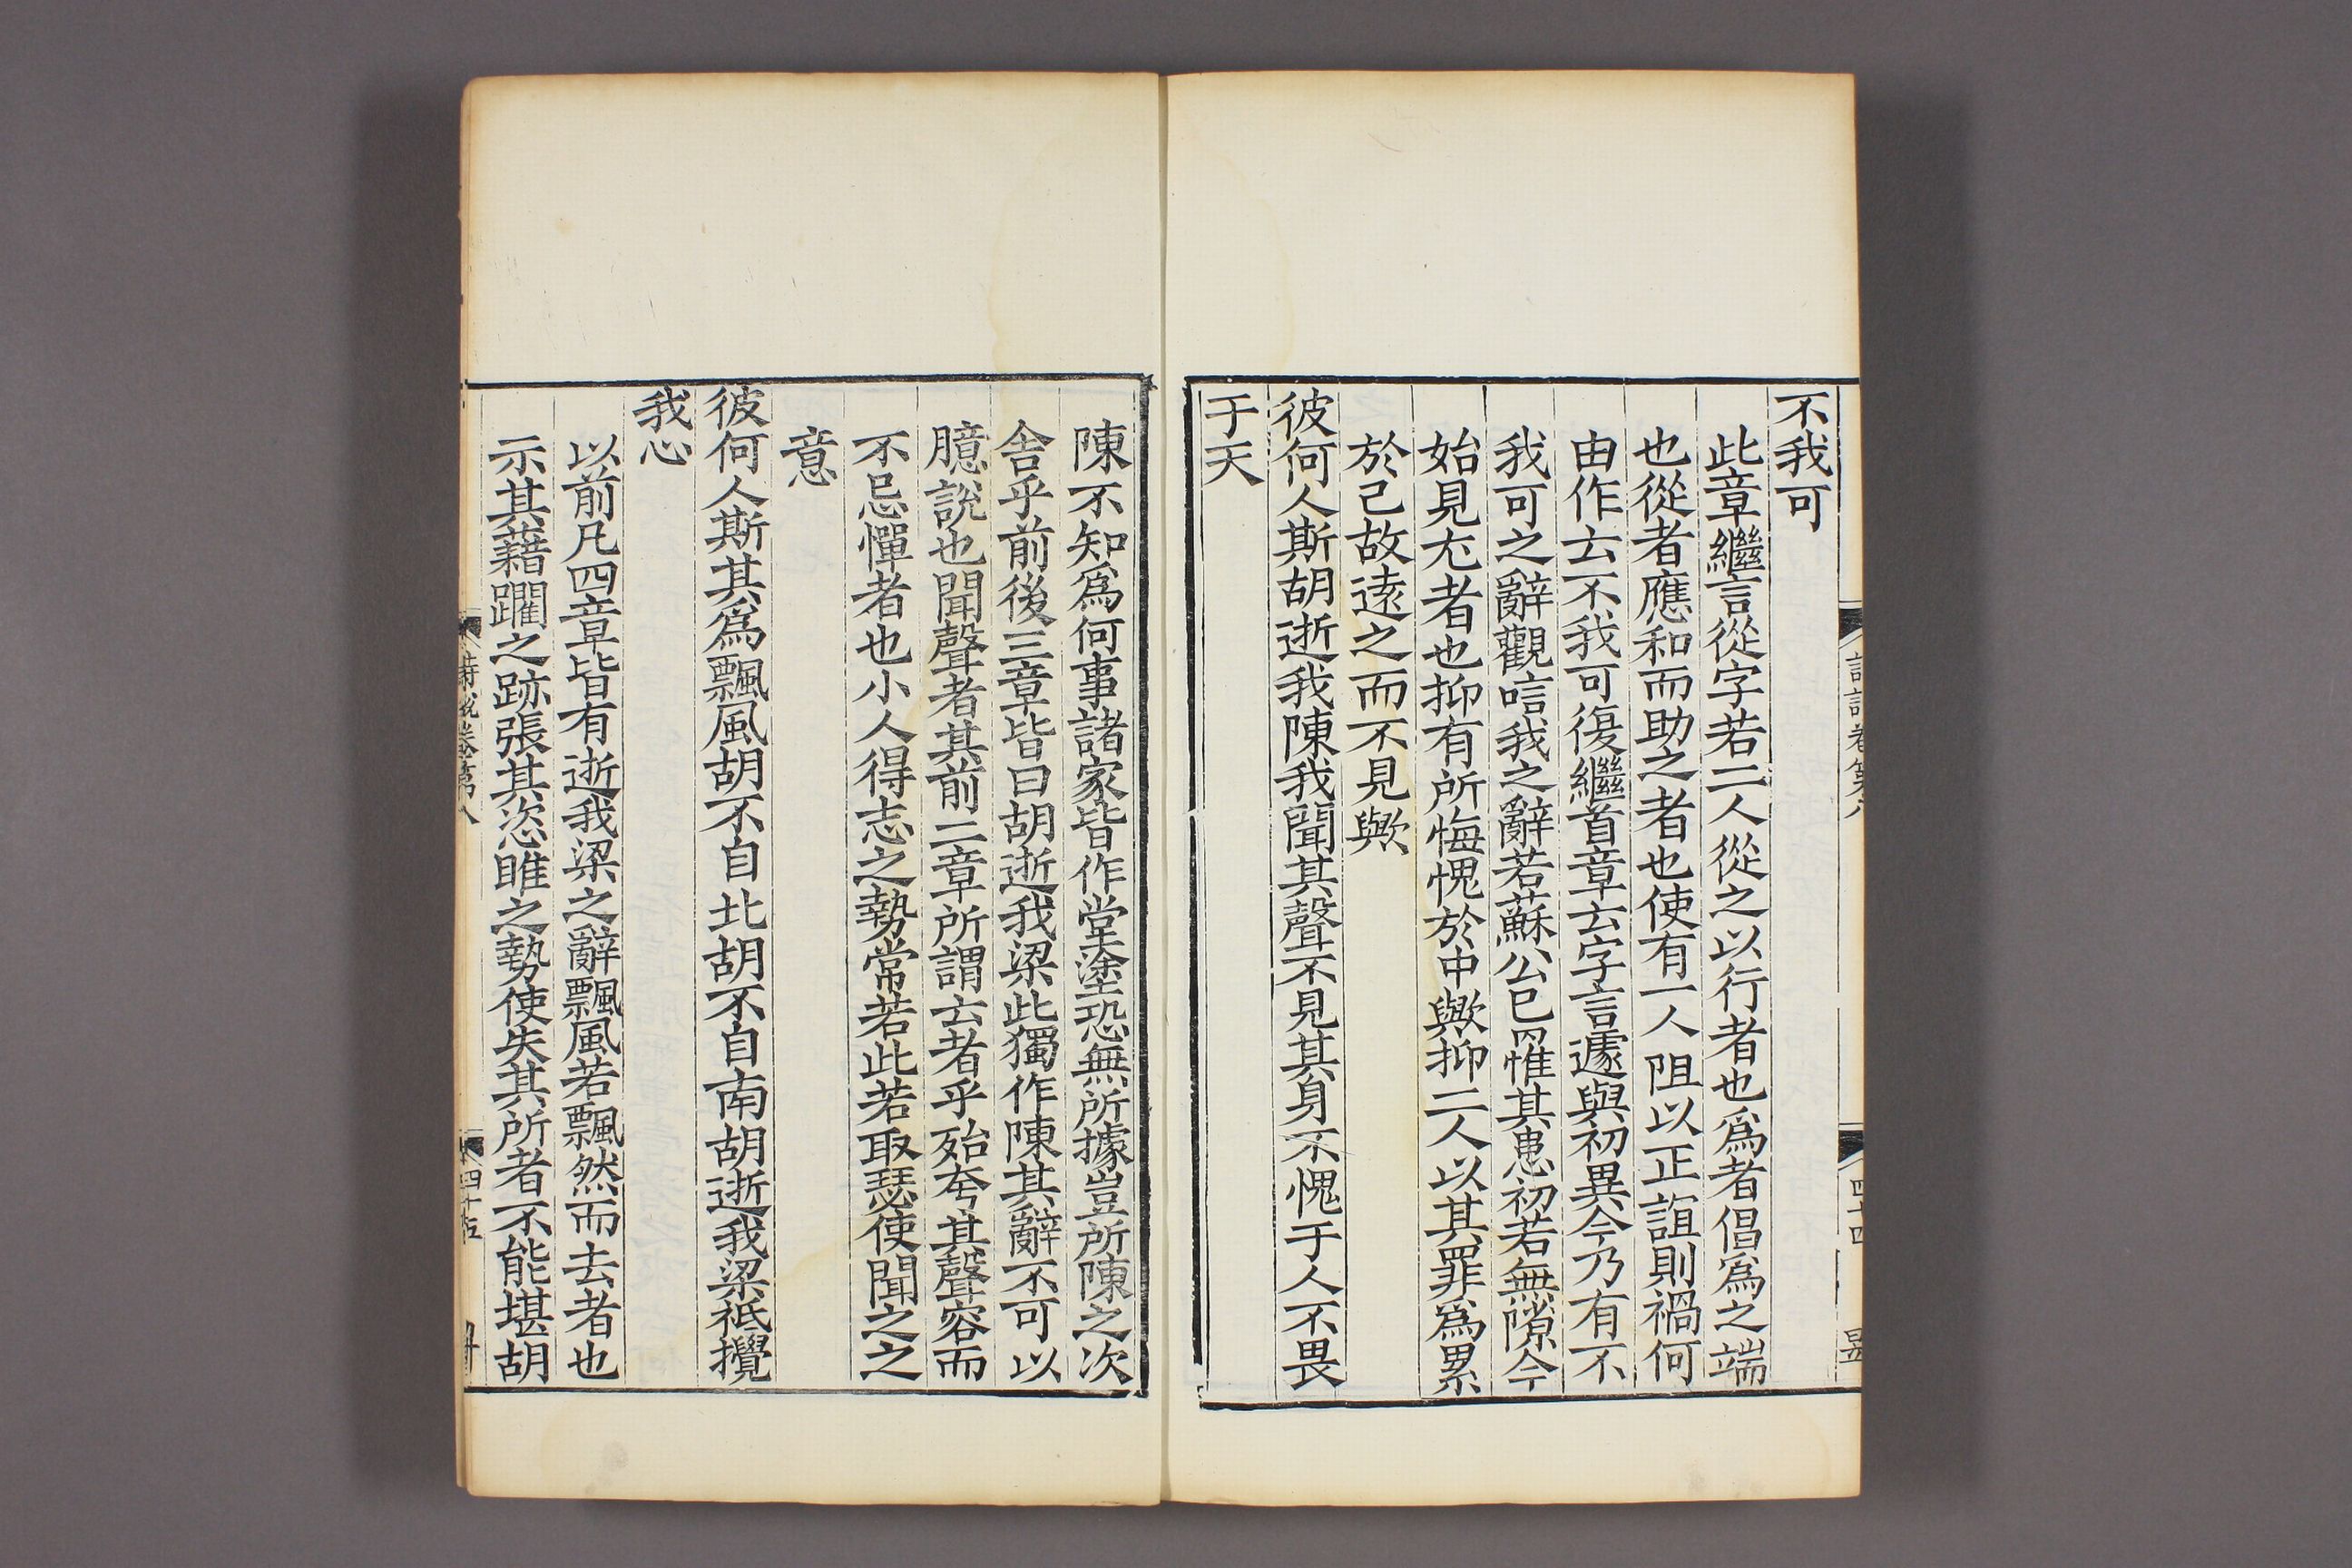 不我可
此章繼言從字若二人從之以行者也爲者倡爲之端
也從者應和而助之者也使有一人阻以正誼則禍何
由作云不我可復繼首章云字言遽與初異今乃有不
我可之辭觀唁我之辭若蘇公已罹其患初若無隙今
始見尤者也抑有所悔愧於中歟抑二人以其罪爲累
於己故遠之而不見歟
彼何人斯胡逝我陳我聞其聲不見其身不愧于人不畏
于天
陳不知爲何事諸家皆作堂塗恐無所據豈所陳之次
舍乎前後三章皆曰胡逝我梁此獨作陳其辭不可以
臆說也聞聲者其前二章所謂云者乎殆夸其聲容而
不忌憚者也小人得志之勢常若此若取瑟使聞之之
意
彼何人斯其爲飄風胡不自北胡不自南胡逝我梁祇攪
我心
以前凡四章皆有逝我梁之辭飄風若飄然而去者也
示其藉躙之跡張其恣睢之勢使失其所者不能堪胡
詩說卷第八
四十五